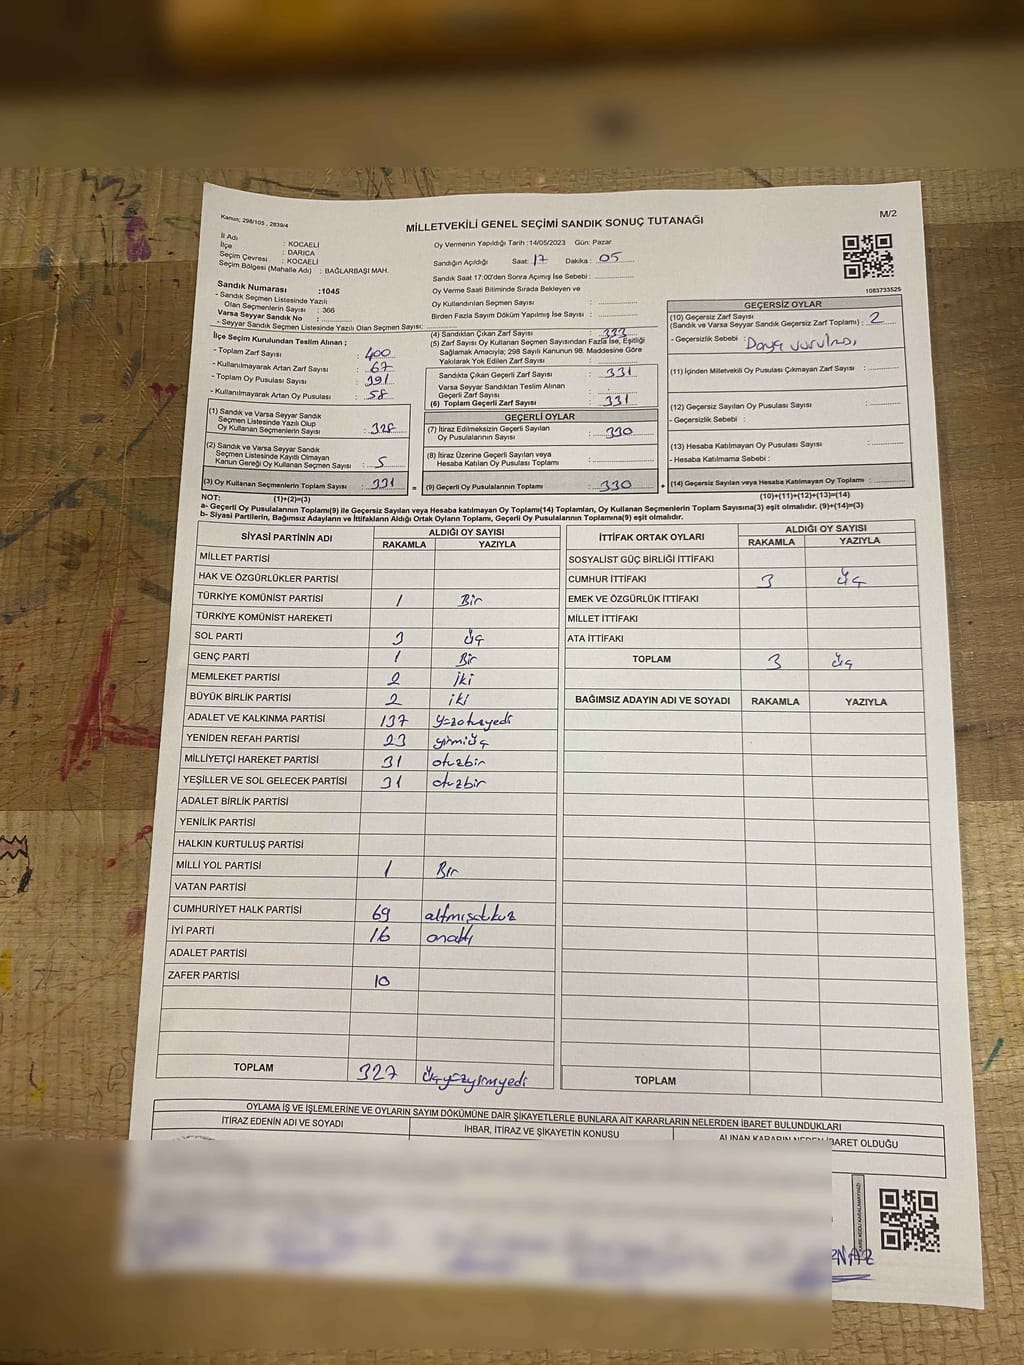 Kanun; 298/105 , 2839/4
M/2
MİLLETVEKİLİ GENEL SEÇİMİ SANDIK SONUÇ TUTANAĞI
İl Adı : KOCAELİ
İlçe : DARICA
Seçim Çevresi : KOCAELİ
Seçim Bölgesi (Mahalle Adı) : BAĞLARBAŞI MAH.
Oy Vermenin Yapıldığı Tarih :14/05/2023 Gün: Pazar
Sandığın Açıldığı Saat: 17 Dakika : 05
Sandık Saat 17:00'den Sonra Açımış İse Sebebi :
Oy Verme Saati Bitiminde Sırada Bekleyen ve
Oy Kullandırılan Seçmen Sayısı :
Birden Fazla Sayım Döküm Yapılmış İse Sayısı :
1083733525
Sandık Numarası :1045
- Sandık Seçmen Listesinde Yazılı
Olan Seçmenlerin Sayısı : 366
Varsa Seyyar Sandık No :
- Seyyar Sandık Seçmen Listesinde Yazılı Olan Seçmen Sayısı:
İlçe Seçim Kurulundan Teslim Alınan ;
- Toplam Zarf Sayısı : 400
- Kullanılmayarak Artan Zarf Sayısı : 67
- Toplam Oy Pusulası Sayısı : 391
- Kullanılmayarak Artan Oy Pusulası : 58
(1) Sandık ve Varsa Seyyar Sandık
Seçmen Listesinde Yazılı Olup
Oy Kullanan Seçmenlerin Sayısı : 328
(2) Sandık ve Varsa Seyyar Sandık
Seçmen Listesinde Kayıtlı Olmayan
Kanun Gereği Oy Kullanan Seçmen Sayısı : 5
(3) Oy Kullanan Seçmenlerin Toplam Sayısı : 331
(4) Sandıktan Çıkan Zarf Sayısı : 333
(5) Zarf Sayısı Oy Kullanan Seçmen Sayısından Fazla İse, Eşitliği
Sağlamak Amacıyla; 298 Sayılı Kanunun 98. Maddesine Göre
Yakılarak Yok Edilen Zarf Sayısı :
Sandıkta Çıkan Geçerli Zarf Sayısı : 331
Varsa Seyyar Sandıktan Teslim Alınan
Geçerli Zarf Sayısı :
(6) Toplam Geçerli Zarf Sayısı : 331
GEÇERLİ OYLAR
(7) İtiraz Edilmeksizin Geçerli Sayılan
Oy Pusulalarının Sayısı : 330
(8) İtiraz Üzerine Geçerli Sayılan veya
Hesaba Katılan Oy Pusulası Toplamı :
= (9) Geçerli Oy Pusulalarının Toplamı : 330 +
GEÇERSİZ OYLAR
(10) Geçersiz Zarf Sayısı
(Sandık ve Varsa Seyyar Sandık Geçersiz Zarf Toplamı) : 2
- Geçersizlik Sebebi :
(11) İçinden Milletvekili Oy Pusulası Çıkmayan Zarf Sayısı :
(12) Geçersiz Sayılan Oy Pusulası Sayısı :
- Geçersizlik Sebebi :
(13) Hesaba Katılmayan Oy Pusulası Sayısı :
- Hesaba Katılmama Sebebi :
(14) Geçersiz Sayılan veya Hesaba Katılmayan Oy Toplamı :
NOT: (1)+(2)=(3) (10)+(11)+(12)+(13)=(14)
a- Geçerli Oy Pusulalarının Toplamı(9) ile Geçersiz Sayılan veya Hesaba katılmayan Oy Toplamı(14) Toplamları, Oy Kullanan Seçmenlerin Toplam Sayısına(3) eşit olmalıdır. (9)+(14)=(3)
b- Siyasi Partilerin, Bağımsız Adayların ve İttifakların Aldığı Ortak Oyların Toplamı, Geçerli Oy Pusulalarının Toplamına(9) eşit olmalıdır.
SİYASİ PARTİNİN ADI ALDIĞI OY SAYISI
RAKAMLA YAZIYLA
MİLLET PARTİSİ
HAK VE ÖZGÜRLÜKLER PARTİSİ
TÜRKİYE KOMÜNİST PARTİSİ 1 Bir
TÜRKİYE KOMÜNİST HAREKETİ
SOL PARTİ 3 üç
GENÇ PARTİ 1 Bir
MEMLEKET PARTİSİ 2 iki
BÜYÜK BİRLİK PARTİSİ 2 iki
ADALET VE KALKINMA PARTİSİ 137 yüzotuzyedi
YENİDEN REFAH PARTİSİ 23 yirmiüç
MİLLİYETÇİ HAREKET PARTİSİ 31 otuzbir
YEŞİLLER VE SOL GELECEK PARTİSİ 31 otuzbir
ADALET BİRLİK PARTİSİ
YENİLİK PARTİSİ
HALKIN KURTULUŞ PARTİSİ
MİLLİ YOL PARTİSİ 1 Bir
VATAN PARTİSİ
CUMHURİYET HALK PARTİSİ 69 altmışdokuz
İYİ PARTİ 16 onaltı
ADALET PARTİSİ
ZAFER PARTİSİ 10
TOPLAM 327 üçyüzyirmiyedi
İTTİFAK ORTAK OYLARI ALDIĞI OY SAYISI
RAKAMLA YAZIYLA
SOSYALİST GÜÇ BİRLİĞİ İTTİFAKI
CUMHUR İTTİFAKI 3 üç
EMEK VE ÖZGÜRLÜK İTTİFAKI
MİLLET İTTİFAKI
ATA İTTİFAKI
TOPLAM 3 üç
BAĞIMSIZ ADAYIN ADI VE SOYADI RAKAMLA YAZIYLA
TOPLAM
OYLAMA İŞ VE İŞLEMLERİNE VE OYLARIN SAYIM DÖKÜMÜNE DAİR ŞİKAYETLERLE BUNLARA AİT KARARLARIN NELERDEN İBARET BULUNDUKLARI
İTİRAZ EDENİN ADI VE SOYADI
İHBAR, İTİRAZ VE ŞİKAYETİN KONUSU
ALINAN KARARIN NEDEN İBARET OLDUĞU